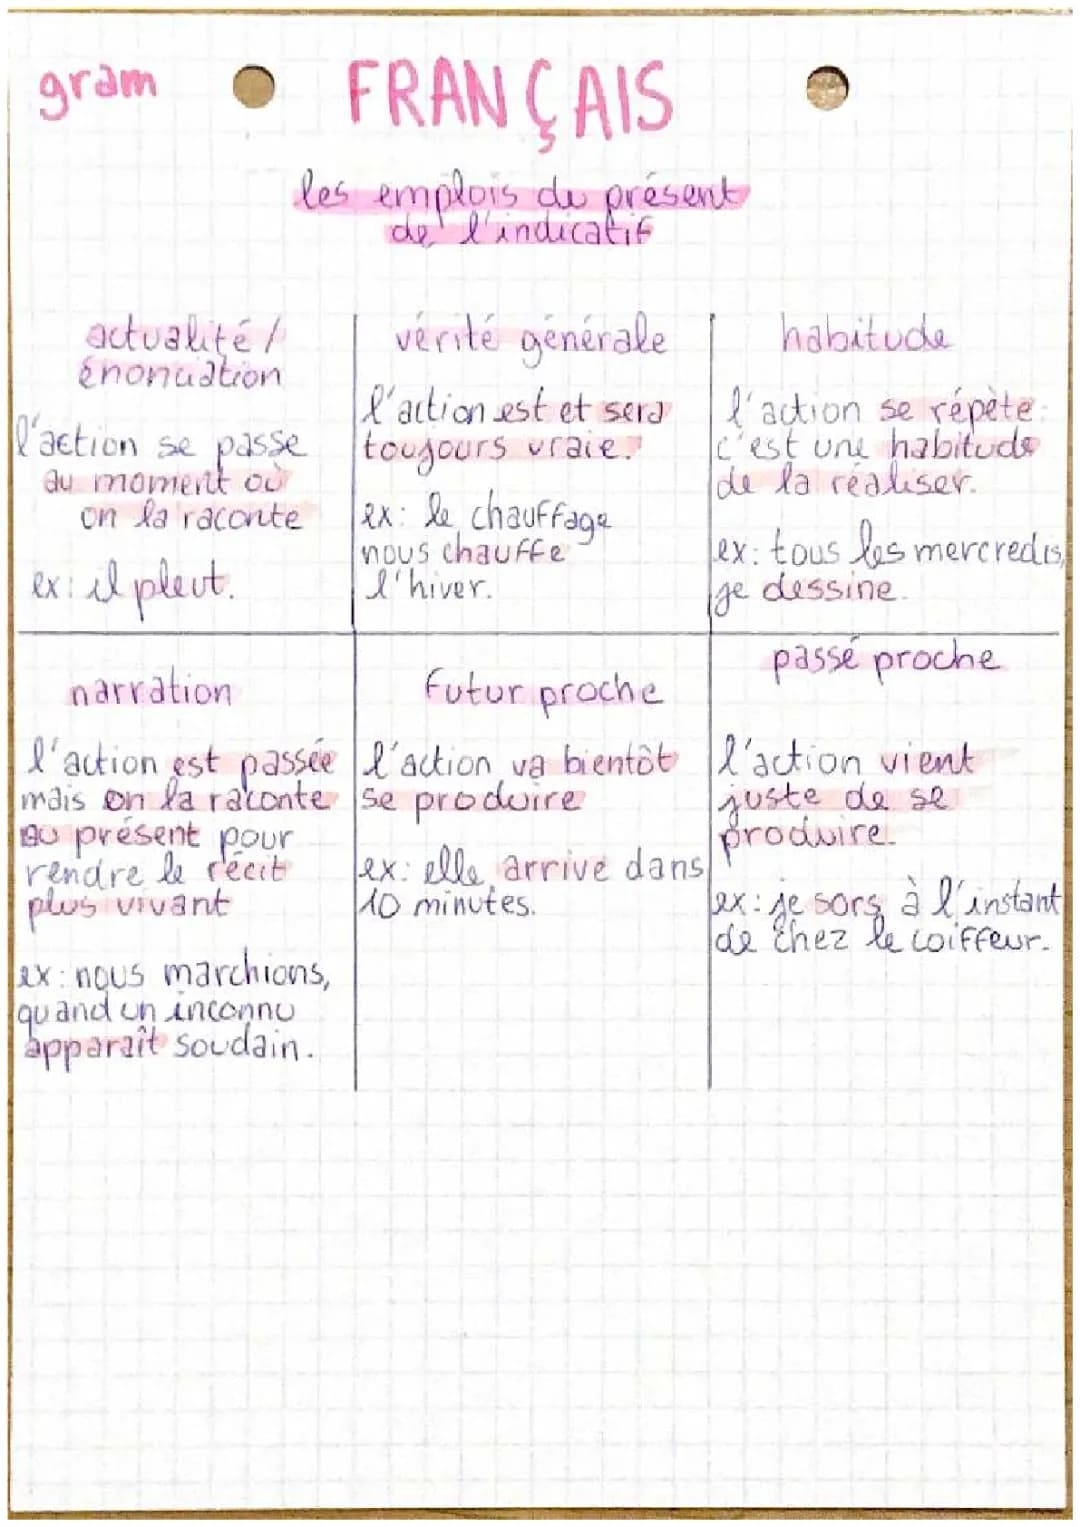 gram
FRANÇAIS
les emplois du présent
de l'indicatif
actualité /
énonciation
l'action se passe
au moment où
on la raconte
ex: il pleut.
vérité générale
l'action est et sera
toujours vraie.
ex: le chauffage
nous chauffe
l'hiver.
habitude
l'action se répète:
c'est une habitude
de la réaliser.
ex: tous les mercredis,
je dessine.
narration
l'action est passée
mais on la raconte
au présent pour
rendre le récit
plus vivant
ex: nous marchions,
quand un inconnu
apparaît soudain.
futur proche
l'action va bientôt
se produire
ex: elle arrive dans
10 minutes.
passé proche
l'action vient
juste de se
produire.
ex: je sors à l'instant
de chez le coiffeur.